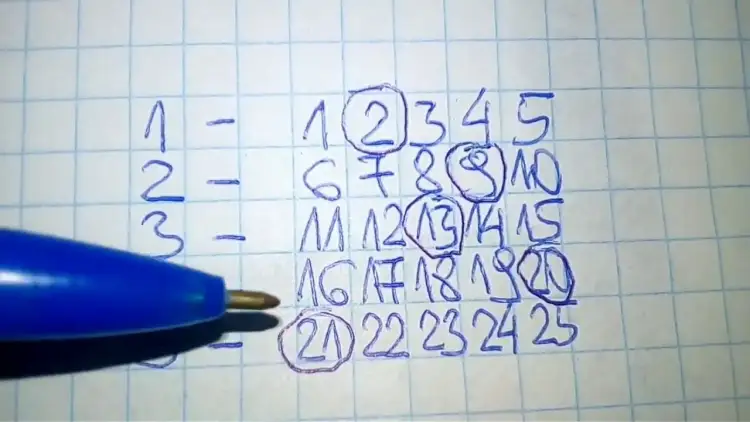 1 - 1 2 3 4 5
2 - 6 7 8 9 10
3 - 11 12 13 14 15
16 17 18 19 20
- 21 22 23 24 25